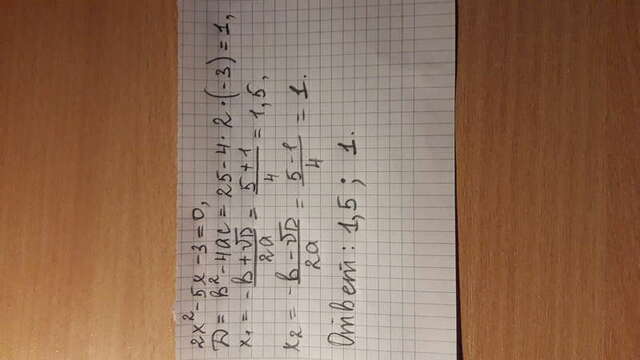 2x² - 5x - 3 = 0,
D = b² - 4ac = 25 - 4 · 2 · (-3) = 1,
x₁ = (-b + √D)/2a = (5 + 1)/4 = 1,5,
x₂ = (-b - √D)/2a = (5 - 1)/4 = 1.
Ответ: 1,5; 1.